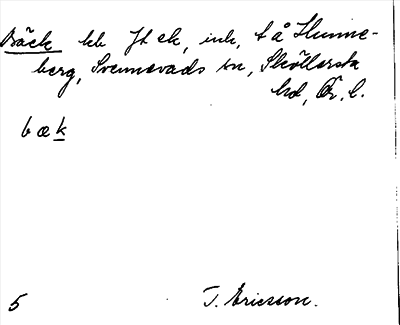 Bäck hb Jt ek, inh, t å Hunne-
berg, Svennevads sn, Sköllersta
hd, Ör. l.
bæk
5 T. Ericsson.